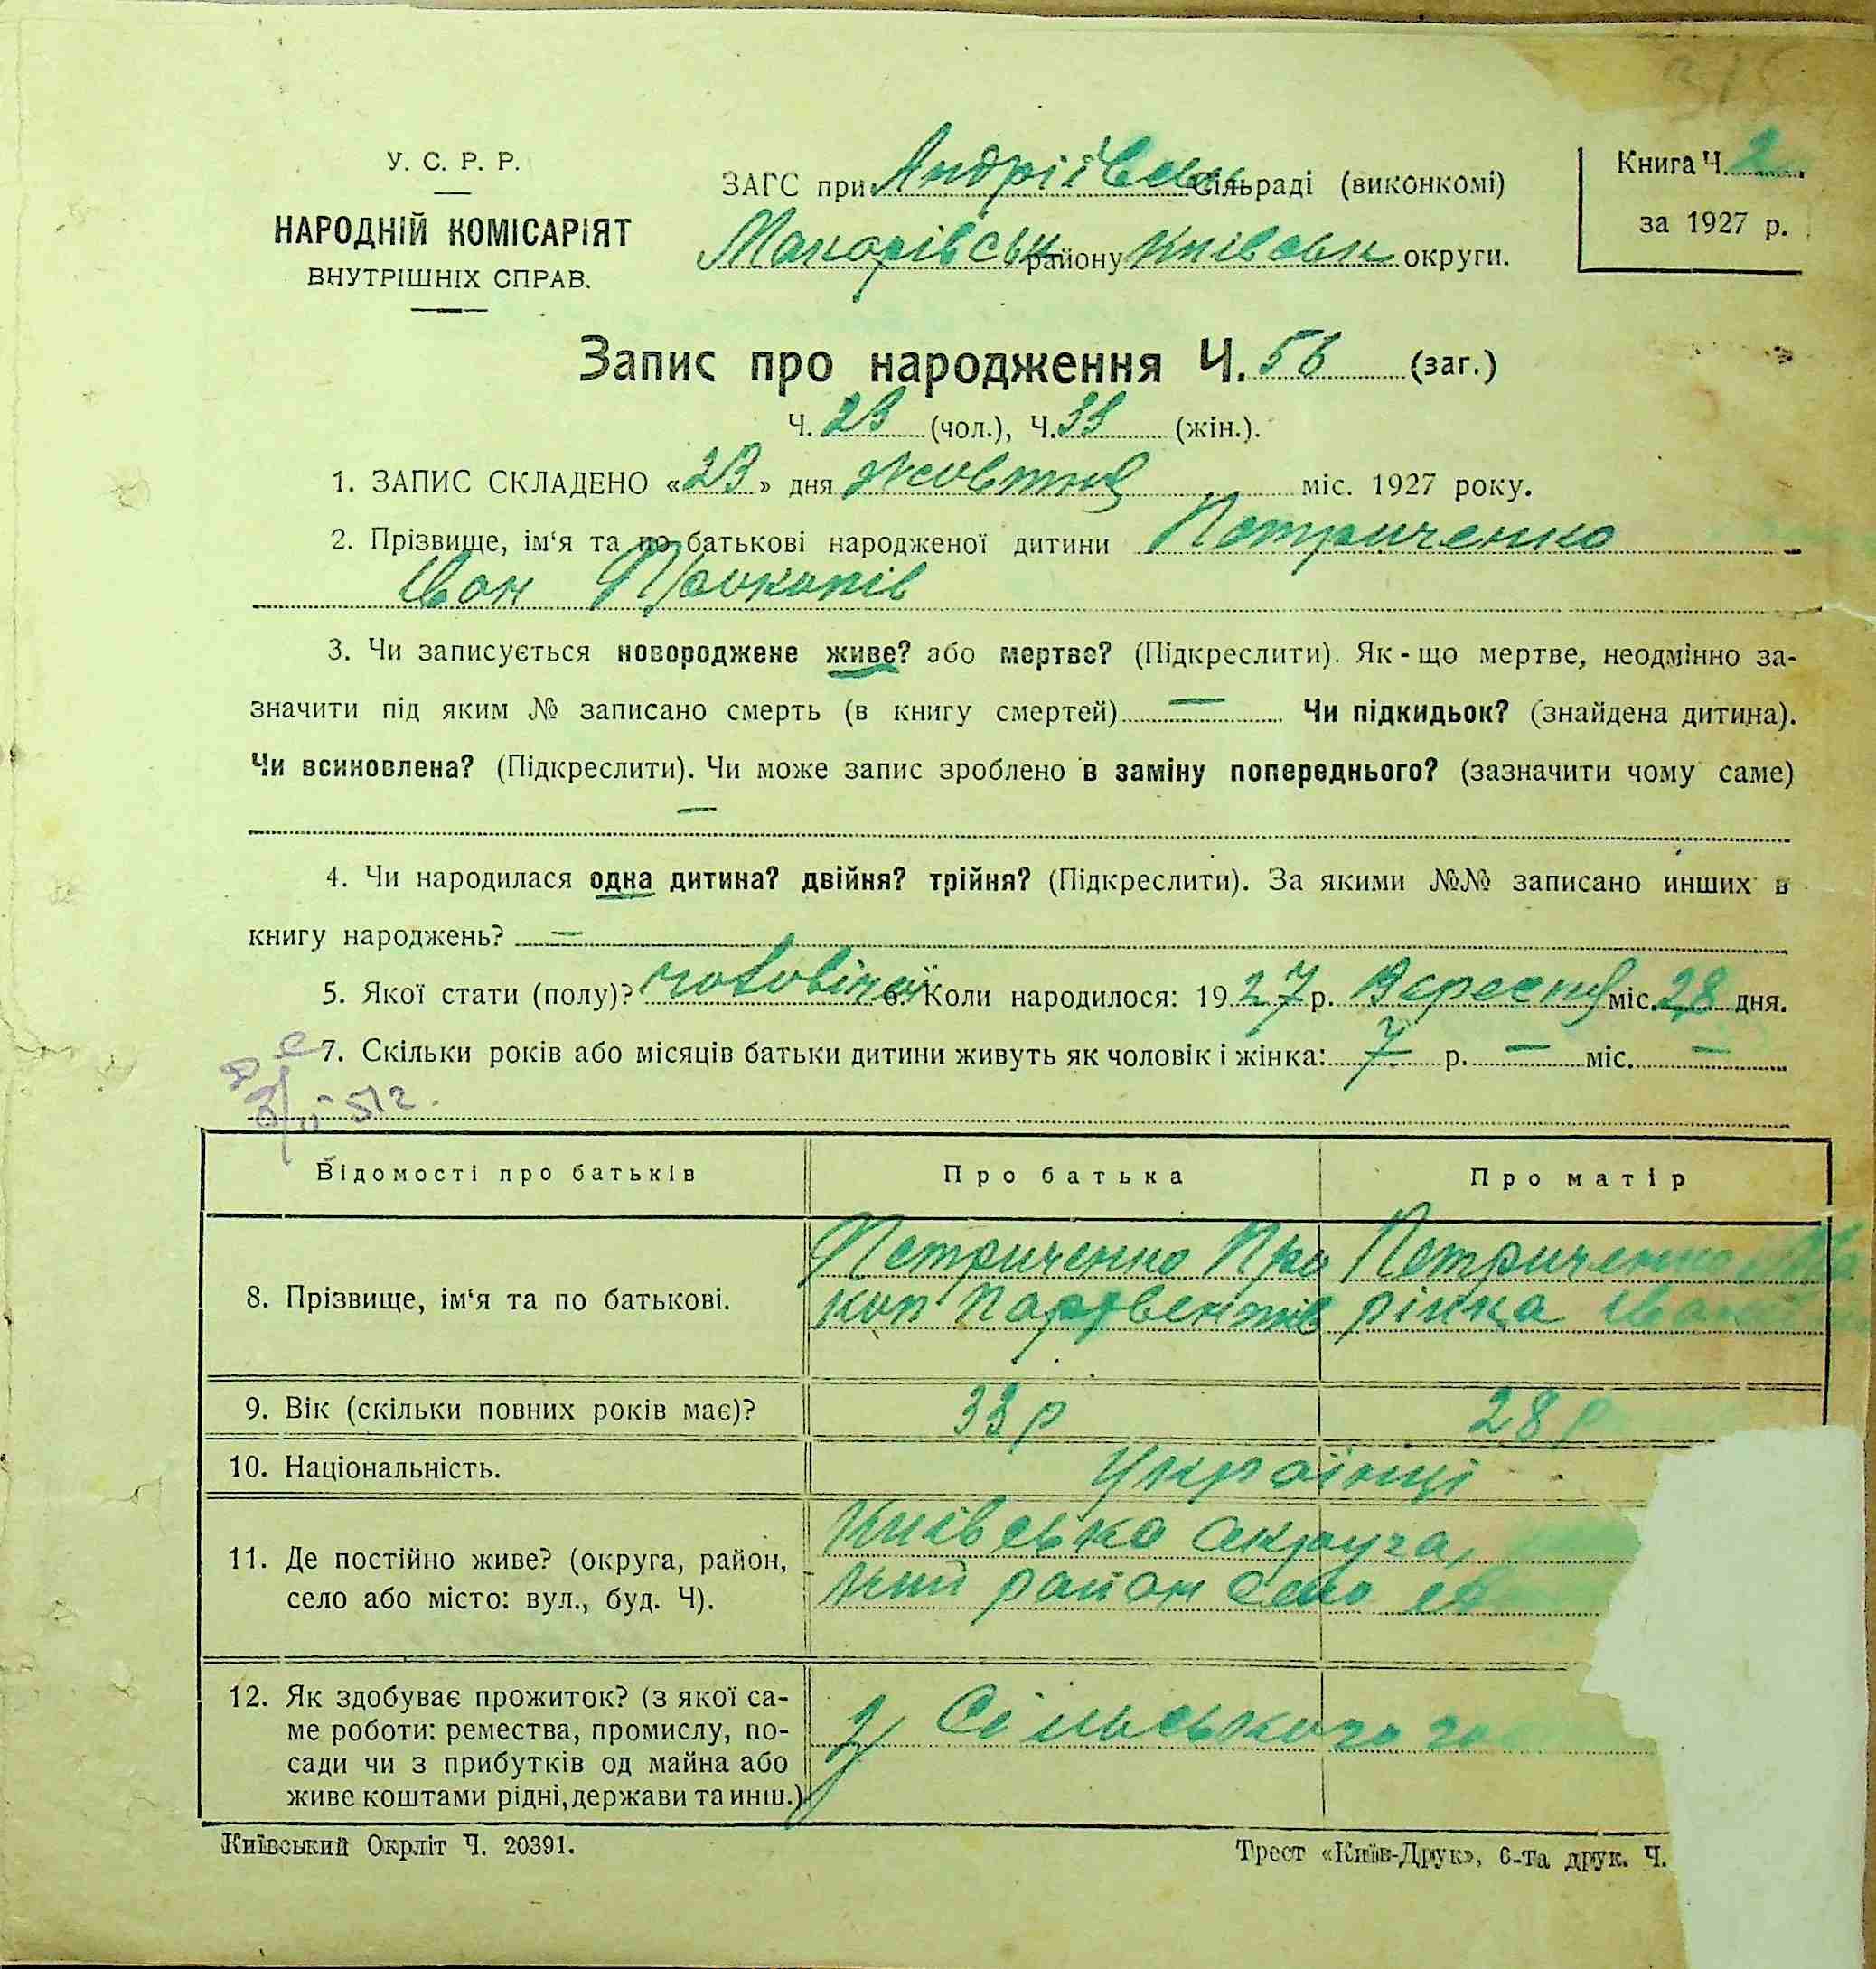 315
У. С. Р. Р.
НАРОДНІЙ КОМІСАРІЯТ
ВНУТРІШНІХ СПРАВ.
ЗАГС при Андріївськ Сільраді (виконкомі)
Макарівськ району Київськ округи.
Книга Ч. 2
за 1927 р.
Запис про народження Ч. 56 (заг.)
Ч. 23 (чол.), Ч. 33 (жін.).
1. ЗАПИС СКЛАДЕНО «23» дня жовтня міс. 1927 року.
2. Прізвище, ім‘я та по батькові народженої дитини Петриченко
Іван Прокопів
3. Чи записується новороджене живе? або мертве? (Підкреслити). Як-що мертве, неодмінно за-
значити під яким № записано смерть (в книгу смертей) — Чи підкидьок? (знайдена дитина).
Чи всиновлена? (Підкреслити). Чи може запис зроблено в заміну попереднього? (зазначити чому саме)
—
4. Чи народилася одна дитина? двійня? трійня? (Підкреслити). За якими №№ записано инших в
книгу народжень? —
5. Якої стати (полу)? чоловічої 6. Коли народилося: 1927 р. Вересня міс. 28 дня.
7. Скільки років або місяців батьки дитини живуть як чоловік і жінка: 7 р. — міс. —
512.
Відомості про батьків Про батька Про матір
8. Прізвище, ім‘я та по батькові.
Петриченко Про
коп Парфвентів
Петриченко Ма
рінка
9. Вік (скільки повних років має)? 33 р 28 р
10. Національність. Українці
11. Де постійно живе? (округа, район,
село або місто: вул., буд. Ч).
Київська округа,
кий район село
12. Як здобуває прожиток? (з якої са-
ме роботи: ремества, промислу, по-
сади чи з прибутків од майна або
живе коштами рідні, держави та инш.)
З Сільського го
Київський Окрліт Ч. 20391.
Трест «Київ-Друк», 6-та друк. Ч.